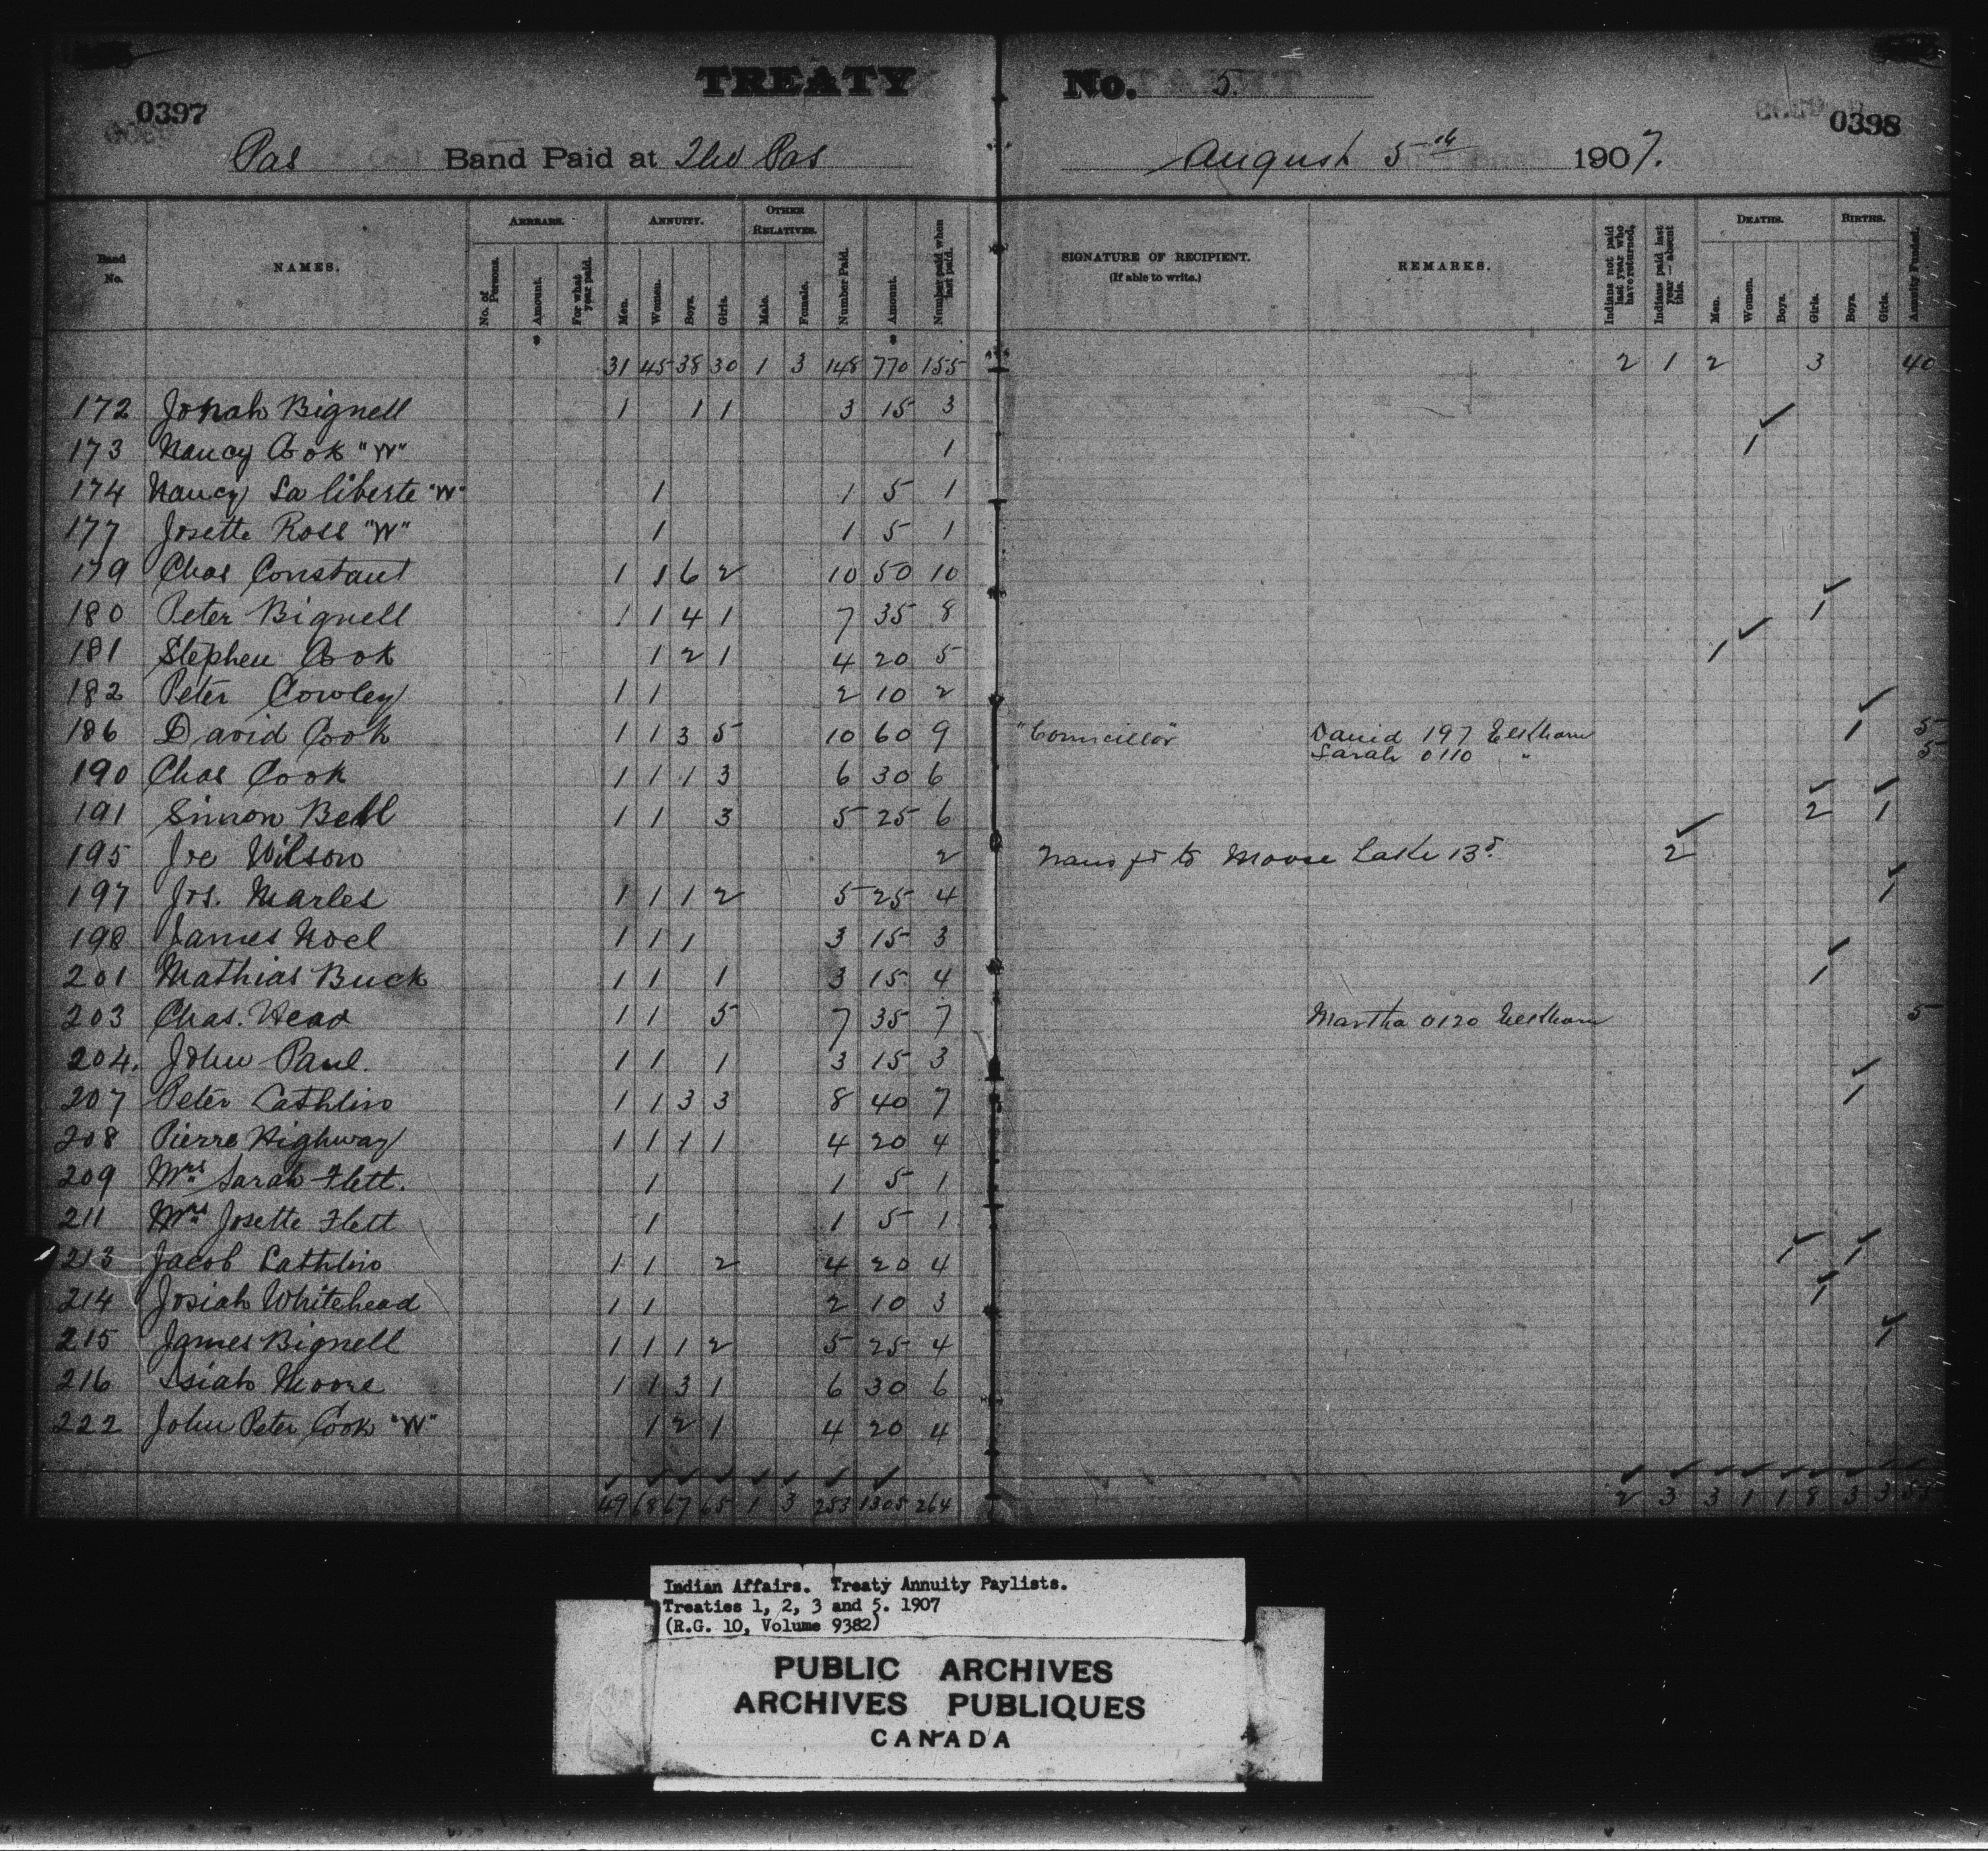 TREATY No. 5.
0397
0398
Pas Band Paid at The Pas August 5th 1907.
Band No.
NAMES.
ARREARS.
No. of Persons.
Amount.
For what year paid.
ANNUITY.
Men.
Women.
Boys.
Girls.
OTHER RELATIVES.
Male.
Female.
Number Paid.
Amount.
Number paid when last paid.
SIGNATURE OF RECIPIENT.
(If able to write.)
REMARKS.
Indians not paid last year who have returned,
Indians paid last year — absent this.
DEATHS.
Men.
Women.
Boys.
Girls.
BIRTHS.
Boys.
Girls.
Annuity Funded.
$ $
31 45 38 30 1 3 148 770 155 2 1 2 3 40
172 Jonah Bignell 1 1 1 3 15 3
173 Nancy Cook "W" 1 1
174 Nancy La liberte "W" 1 1 5 1
177 Josette Ross "W" 1 1 5 1
179 Chas Constant 1 1 6 2 10 50 10
180 Peter Bignell 1 1 4 1 7 35 8 1
181 Stephen Cook 1 2 1 4 20 5 1
182 Peter Cowley 1 1 2 10 2
186 David Cook 1 1 3 5 10 60 9 "Councillor" David 197 Elkhorn 1 5
Sarah 0110 " 5
190 Chas Cook 1 1 1 3 6 30 6
191 Simon Bell 1 1 3 5 25 6 2 1
195 Joe Wilson 2 Trans fd to Moose Lake 135. 2
197 Jos. Marles 1 1 1 2 5 25 4 1
198 James Noel 1 1 1 3 15 3
201 Mathias Buck 1 1 1 3 15 4 1
203 Chas. Head 1 1 5 7 35 7 Martha 0120 Elkhorn 5
204. John Paul. 1 1 1 3 15 3
207 Peter Lathlin 1 1 3 3 8 40 7 1
208 Pierre Highway 1 1 1 1 4 20 4
209 Mrs Sarah Flett. 1 1 5 1
211 Mrs Josette Flett 1 1 5 1
213 Jacob Lathlin 1 1 2 4 20 4 1 1
214 Josiah Whitehead 1 1 2 10 3 1
215 James Bignell 1 1 1 2 5 25 4 1
216 Isiah Moore 1 1 3 1 6 30 6
222 John Peter Cook "W" 1 2 1 4 20 4
49 68 67 65 1 3 253 1305 264 2 3 3 1 1 8 3 3 55
Indian Affairs. Treaty Annuity Paylists.
Treaties 1, 2, 3 and 5. 1907
(R.G. 10, Volume 9382)
PUBLIC ARCHIVES
ARCHIVES PUBLIQUES
CANADA